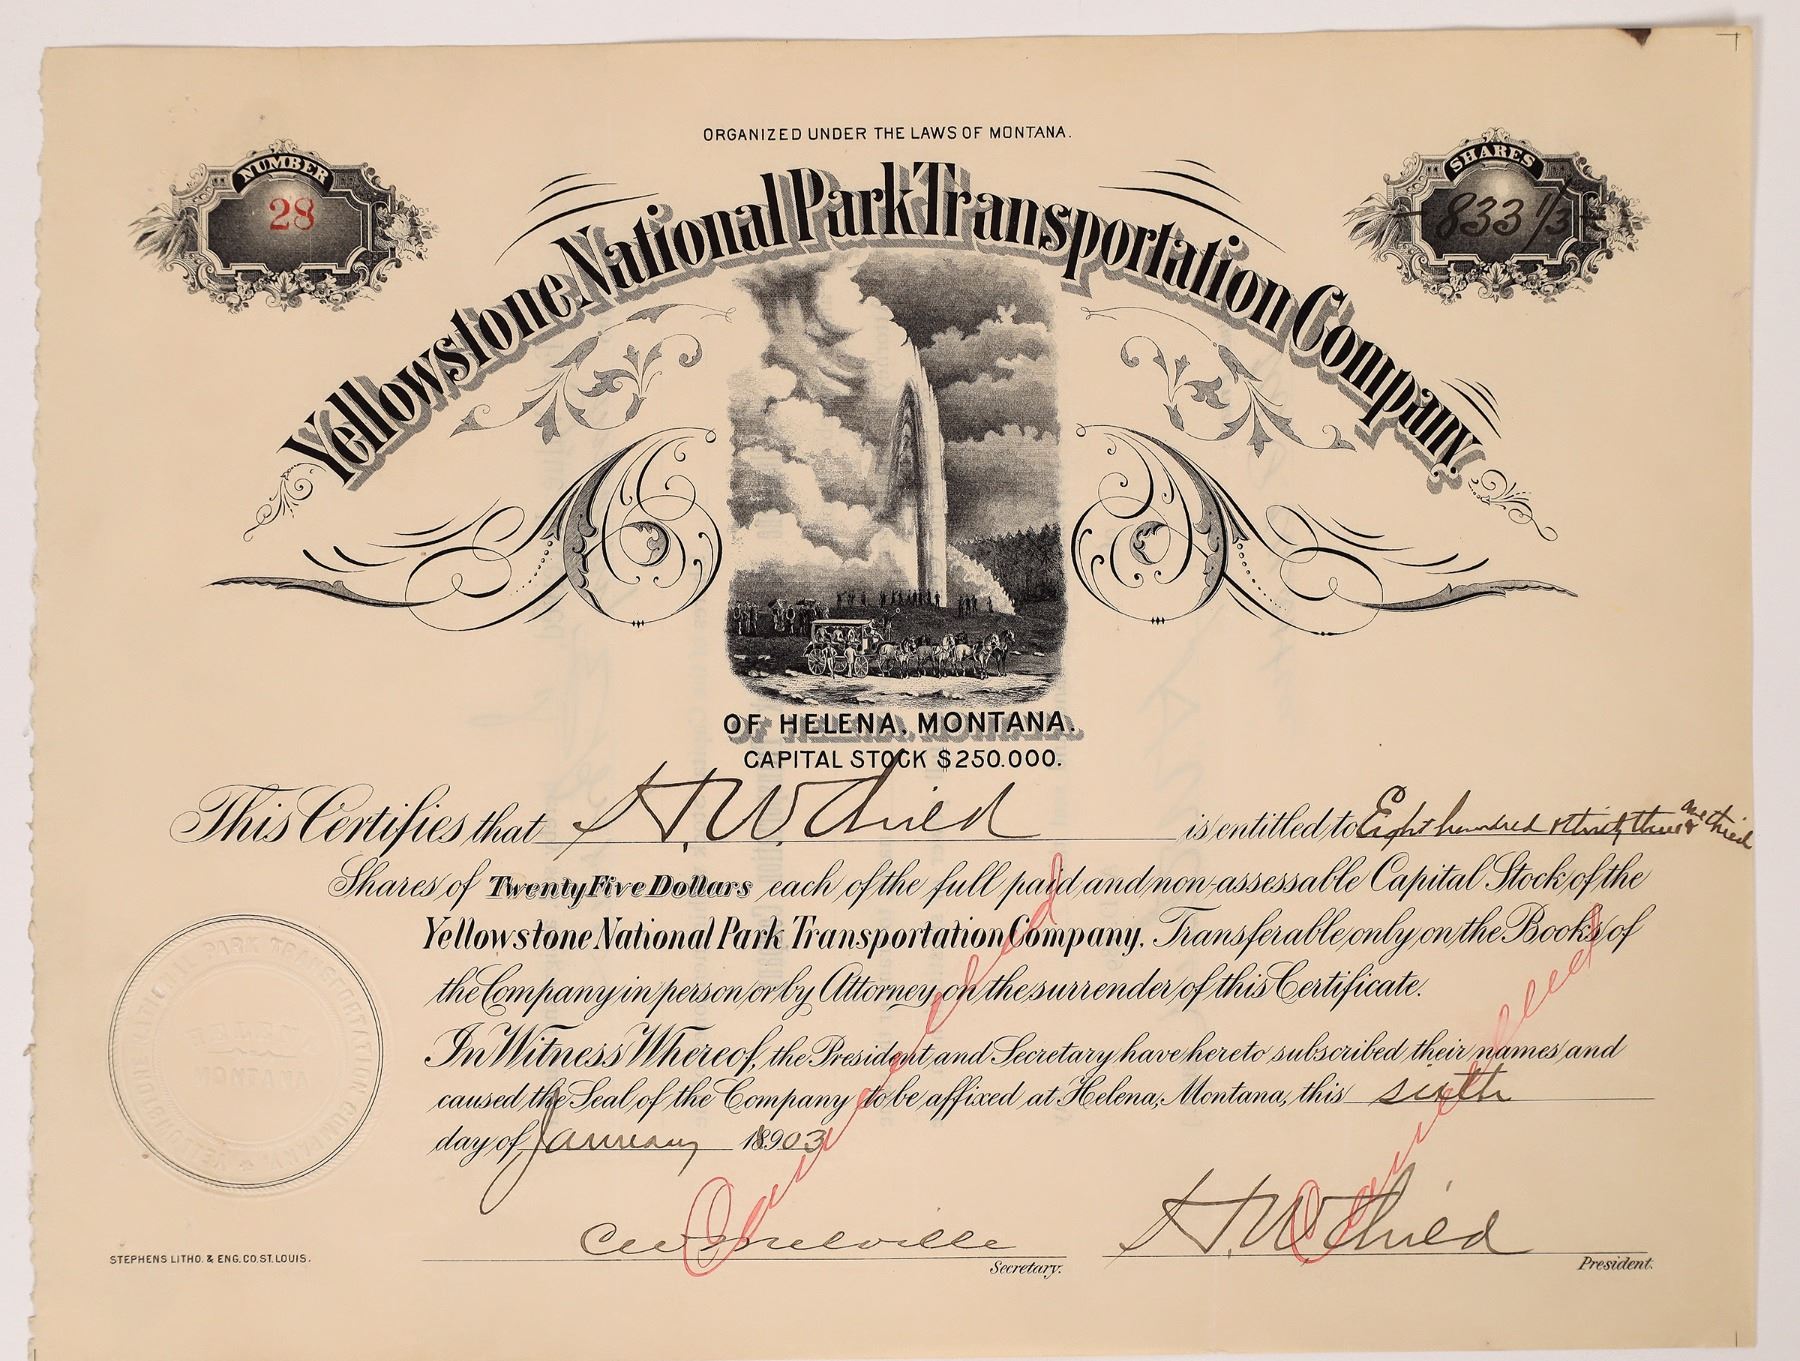 ORGANIZED UNDER THE LAWS OF MONTANA.
NUMBER
28
SHARES
833 1/3
Yellowstone National Park Transportation Company.
OF HELENA, MONTANA.
CAPITAL STOCK $250.000.
This Certifies that H. W. Child is entitled to Eight hundred & thirty three & one third
Shares of Twenty Five Dollars each of the full paid and non-assessable Capital Stock of the
Yellowstone National Park Transportation Company. Transferable only on the Books of
the Company in person or by Attorney on the surrender of this Certificate.
In Witness Whereof, the President and Secretary have hereto subscribed their names and
caused the Seal of the Company to be affixed at Helena, Montana, this sixth
day of January 1903
Cancelled
Cancelled
HELENA
MONTANA
STEPHENS LITHO. & ENG. CO. ST. LOUIS.
Melville
Secretary.
H. W. Child
President.